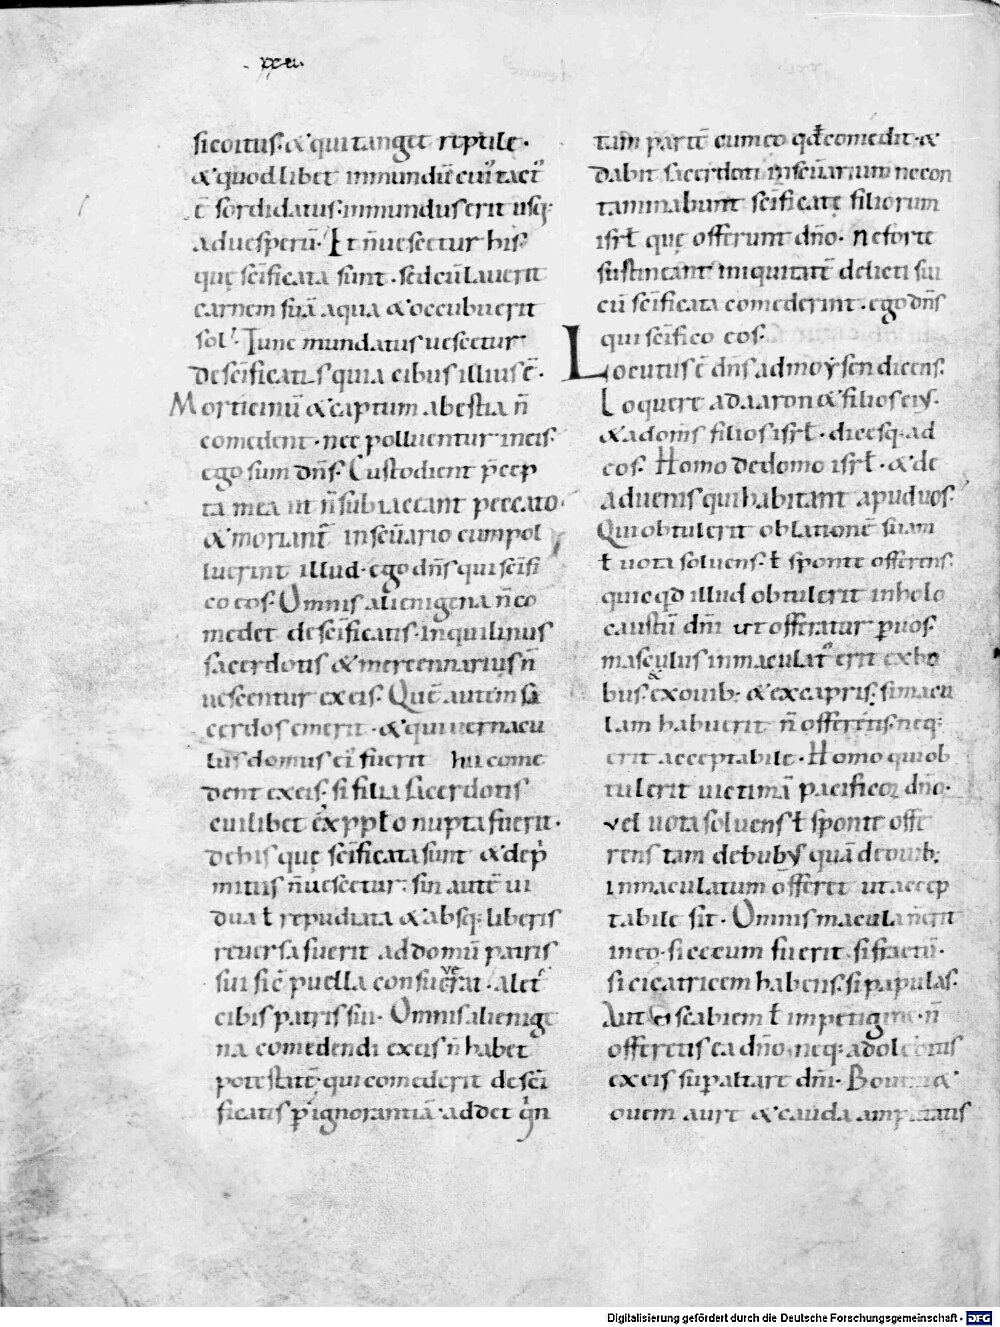 . xxii.
sicoitus· & qui tangit reptile·
& quodlibet inmundū cui᾽ tact᾽
ē sordidatus· inmundus erit usq;
aduesperū· Et ñ uescetur his·
quę sc̄ificata sunt· sed cū lauerit
carnem suā aqua & occubuerit
sol· Tunc mundatus uescetur
de sc̄ificatis quia cibus illius ē·
Morticinū & captum abestia ñ
comedent· nec polluentur ineis·
ego sum dn̄s· Custodient p̄cep
ta mea ut ñ subiaceant peccato·
& moriant᾽ in sc̄uario cum pol
luerint illud· ego dn̄s qui sc̄ifi
co eos· Omnis alienigena ñ co
medet de sc̄ificatis· inquilinus
sacerdotis & mercennarius ñ
uescentur exeis· Quē autem sa
cerdos emerit· & qui uernacu
lus domus ei᾽ fuerit hi come
dent exeis· si filia sacerdotis
cuilibet ex pplo nupta fuerit·
de his quę sc̄ificata sunt & de p̄
mitiis ñ uescetur· sin autē ui
dua ł repudiata & absq; liberis
reuersa fuerit ad domū patris
sui sic̄ puella consuuerat· alet᾽
cibis patris sui· Omnis alienige
na comedendi exeis ñ habet
potestatē· qui comederit de sc̄i
ficatis p ignorantiā· addet qin
tam partē cum eo qd comedit· &
dabit sacerdoti in sc̄uarium nec con
taminabunt sc̄ificatę filiorum
isrł quę offerunt dn̄o· ne forte
sustineant iniquitatē delicti sui
cū sc̄ificata comederint· ego dn̄s
qui sc̄ifico eos·
Locutus ē dn̄s ad moysen dicens·
Loquere ad aaron & filios ei᾽·
& ad om̄s filios isrł· dicesq· ad
eos· Homo de domo isrł· & de
aduenis qui habitant apud uos·
Qui obtulerit oblationē suam
ł uota soluens· ł sponte offerens·
quicqd illud obtulerit in holo
caustū dn̄i ut offeratur p uos·
masculus inmaculat᾽ erit ex bo
bus· & ex ouib; & ex capris· si macu
lam habuerit ñ offeretis· neq;
erit acceptabile· Homo qui ob
tulerit uictimā pacificoꝝ dn̄o·
vel uota soluens ł sponte offe
rens tam de bubus quā de ouib;
inmaculatum offeret ut accep
tabile sit· Omnis macula ñ erit
in eo· si cecum fuerit· si fractū·
si cicatricem habens· si papulas·
Aut scabiem ł impetigine· ñ
offeretis ea dn̄o· neq; adolebitis
exeis sup altare dn̄i· Bouem &
ouem aure & cauda amputatis
Digitalisierung gefördert durch die Deutsche Forschungsgemeinschaft - DFG